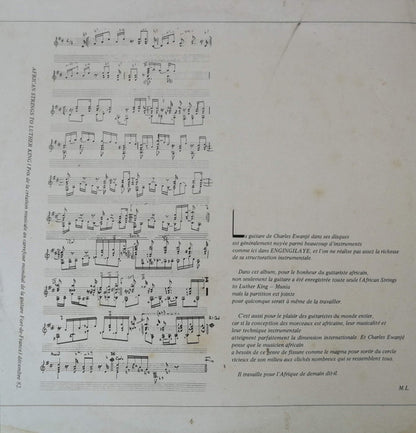 AFRICAN STRINGS TO LUTHER KING (Prix de la création musicale au carrefour mondial de la guitare Fort-de-France) décembre 82
La guitare de Charles Ewanjé dans ses disques
est généralement noyée parmi beaucoup d'instruments
comme ici dans ENGINGILAYE, et l'on ne réalise pas assez la richesse
de sa structuration instrumentale.
Dans cet album, pour le bonheur du guitariste africain,
non seulement la guitare a été enregistrée toute seule (African Strings
to Luther King — Munia
mais la partition est jointe
pour quiconque serait à même de la travailler.
C'est aussi pour le plaisir des guitaristes du monde entier,
car si la conception des morceaux est africaine, leur musicalité et
leur technique instrumentale
atteignent parfaitement la dimension internationale. Et Charles Ewanjé
pense que le musicien africain
a besoin de ce genre de fissure comme le magma pour sortir du cercle
vicieux de son milieu aux clichés nombreux qui se ressemblent tous.
Il travaille pour l'Afrique de demain dit-il.
M.L.
4